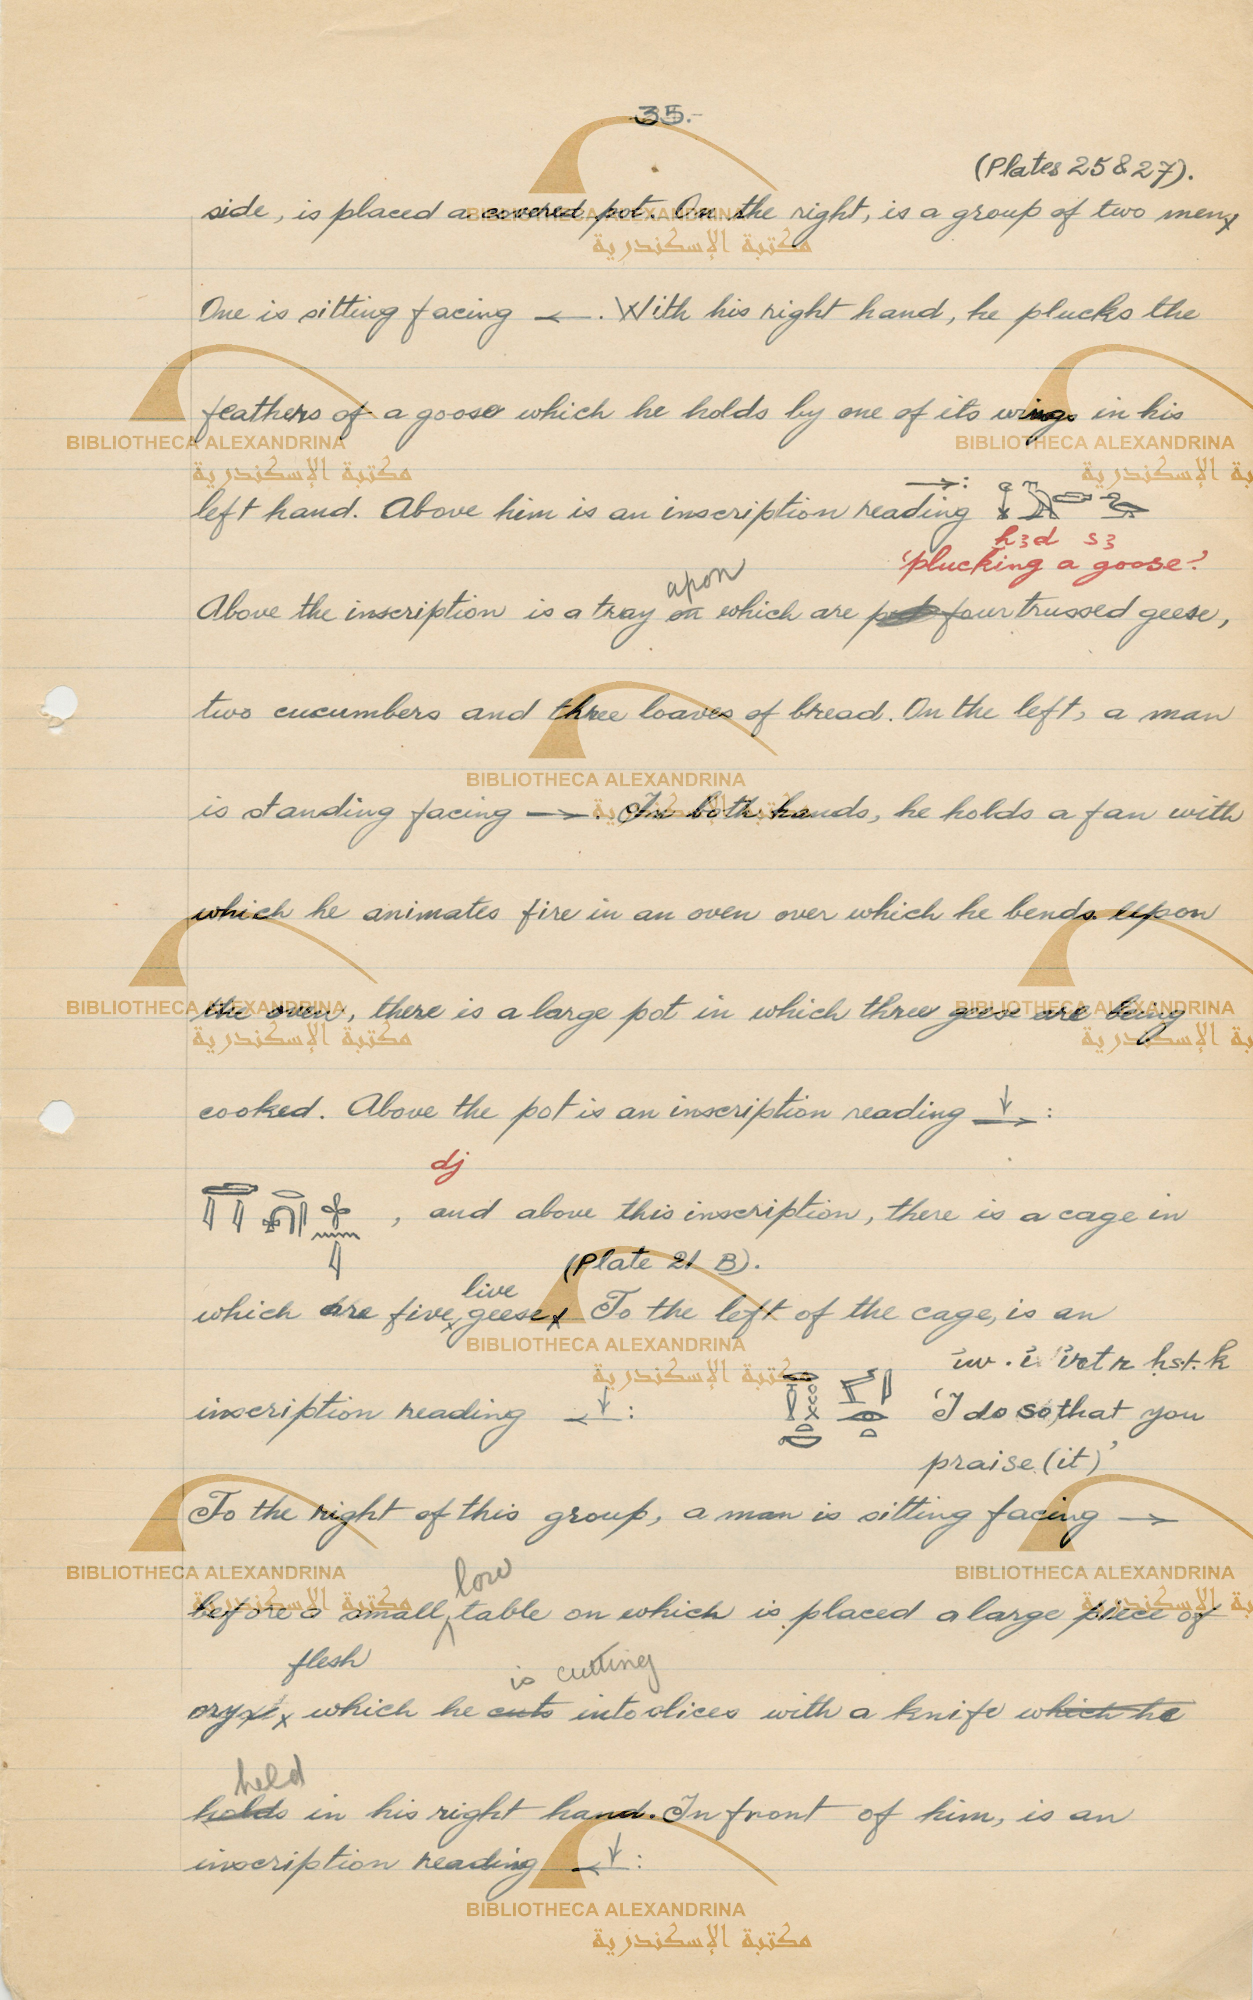 35.
(Plates 25 & 27).
side, is placed a covered pot. On the right, is a group of two men x
One is sitting facing ←. With his right hand, he plucks the
feathers of a goose which he holds by one of its wings in his
left hand. Above him is an inscription reading →:
ḥꜣd sꜣ
'plucking a goose'.
upon
Above the inscription is a tray on which are put four trussed geese,
two cucumbers and three loaves of bread. On the left, a man
is standing facing →. In both hands, he holds a fan with
which he animates fire in an oven over which he bends. Upon
the oven, there is a large pot in which three geese are being
cooked. Above the pot is an inscription reading ↓→:
dj
, and above this inscription, there is a cage in
(Plate 21 B).
live
which are five x geese x To the left of the cage, is an
iw.i irt r ḥst.k
inscription reading ←↓: 'I do so that you
praise (it)'
To the right of this group, a man is sitting facing →
low
before a small table on which is placed a large piece of
flesh is cutting
oryx x which he cuts into slices with a knife which he
held
holds in his right hand. In front of him, is an
inscription reading ←↓:
BIBLIOTHECA ALEXANDRINA
مكتبة الإسكندرية